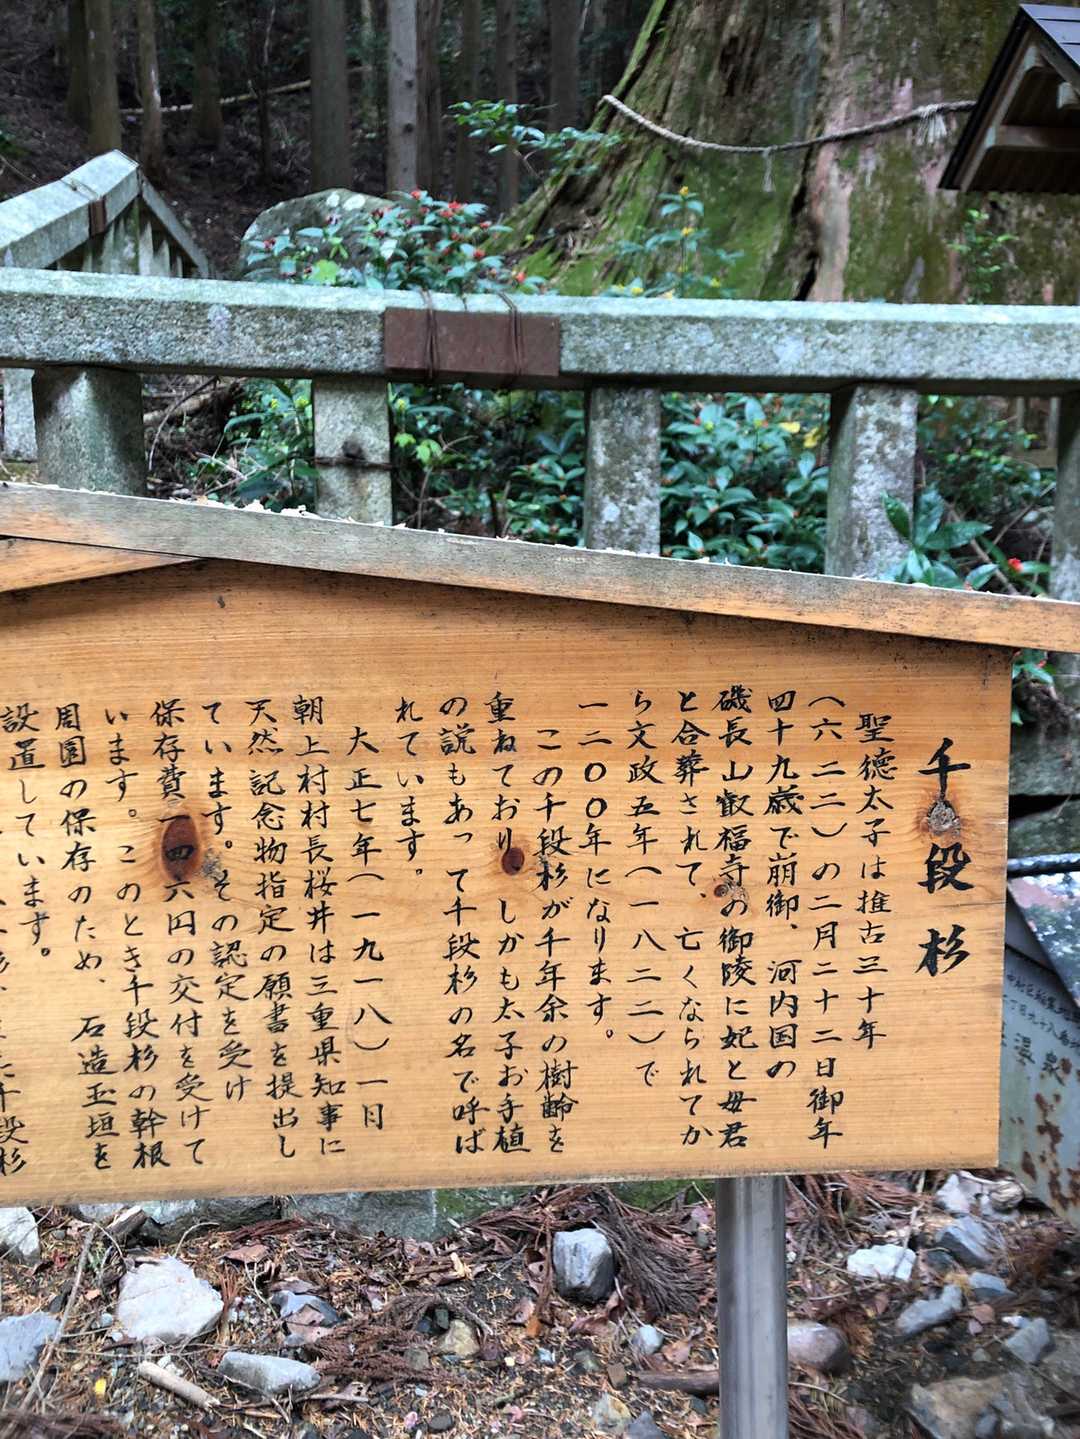 千段杉
聖徳太子は推古三十年
(六二二)の二月二十二日御年
四十九歳で崩御、河内国の
磯長山叡福寺の御陵に妃と母君
と合葬されて、亡くなられてか
ら文政五年(一八二二)で
一二〇〇年になります。
この千段杉が千年余の樹齢を
重ねており、しかも太子お手植
の説もあって千段杉の名で呼ば
れています。
大正七年(一九一八)一月
朝上村村長桜井は三重県知事に
天然記念物指定の願書を提出し
ています。その認定を受け
保存費一四六円の交付を受けて
います。このとき千段杉の幹根
周囲の保存のため、石造玉垣を
設置しています。
千段杉
温泉